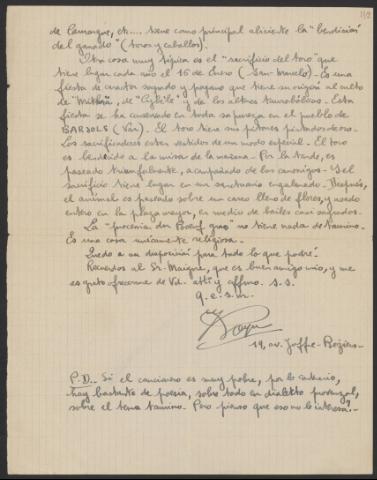 de Camargue, etc.... tiene como principal aliciente la "bendición
del ganado" (toros y caballos).
Otra cosa muy típica es el "sacrificio del toro" que
tiene lugar cada año el 16 de Enero (San-Marcelo). Es una
fiesta de caracter sagrado y pagano que tiene su origen al culto
de "Mithra", de "Cybèle" y de los altares taurobólicos. Esta
fiesta se ha conservado en toda su pureza en el pueblo de
BARJOLS (Var). El toro tiene sus pitones pintados de oro.
Los sacrificadores estan vestidos de un modo especial. El toro
es bendecido a la misa de la mañana. Por la tarde, es
paseado triunfalmente, acompañado de los canonigos. Y el
sacrificio tiene lugar en un santuario engalanado. Después,
el animal es paseado sobre un carro lleno de flores, y asado
entero en la plaza mayor, en medio de bailes casi sagrados.
La "procesión dou Bœuf gras" no tiene nada de taurino.
Es una cosa meramente religiosa.
Quedo a su disposición para todo lo que podré.
Recuerdos al Sr. Maigne, que es buen amigo mio, y me
es grato ofrecerme de Vd. atto y affmo. s.s.
q.e.s.m.
19, av. Joffre - Rognac -
P.D.. Si el cancionero es muy pobre, por lo contrario,
hay bastante de poesia, sobre todo en dialecto provenzal,
sobre el tema taurino. Pero pienso que eso no le interesa? -